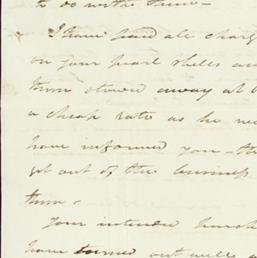 to do with them -
I have paid all charg
on your pearl shells an
them stowed away at
a cheap rate as he
have informed you - 
get out of the business
them.
Your intended purch
have turned out well